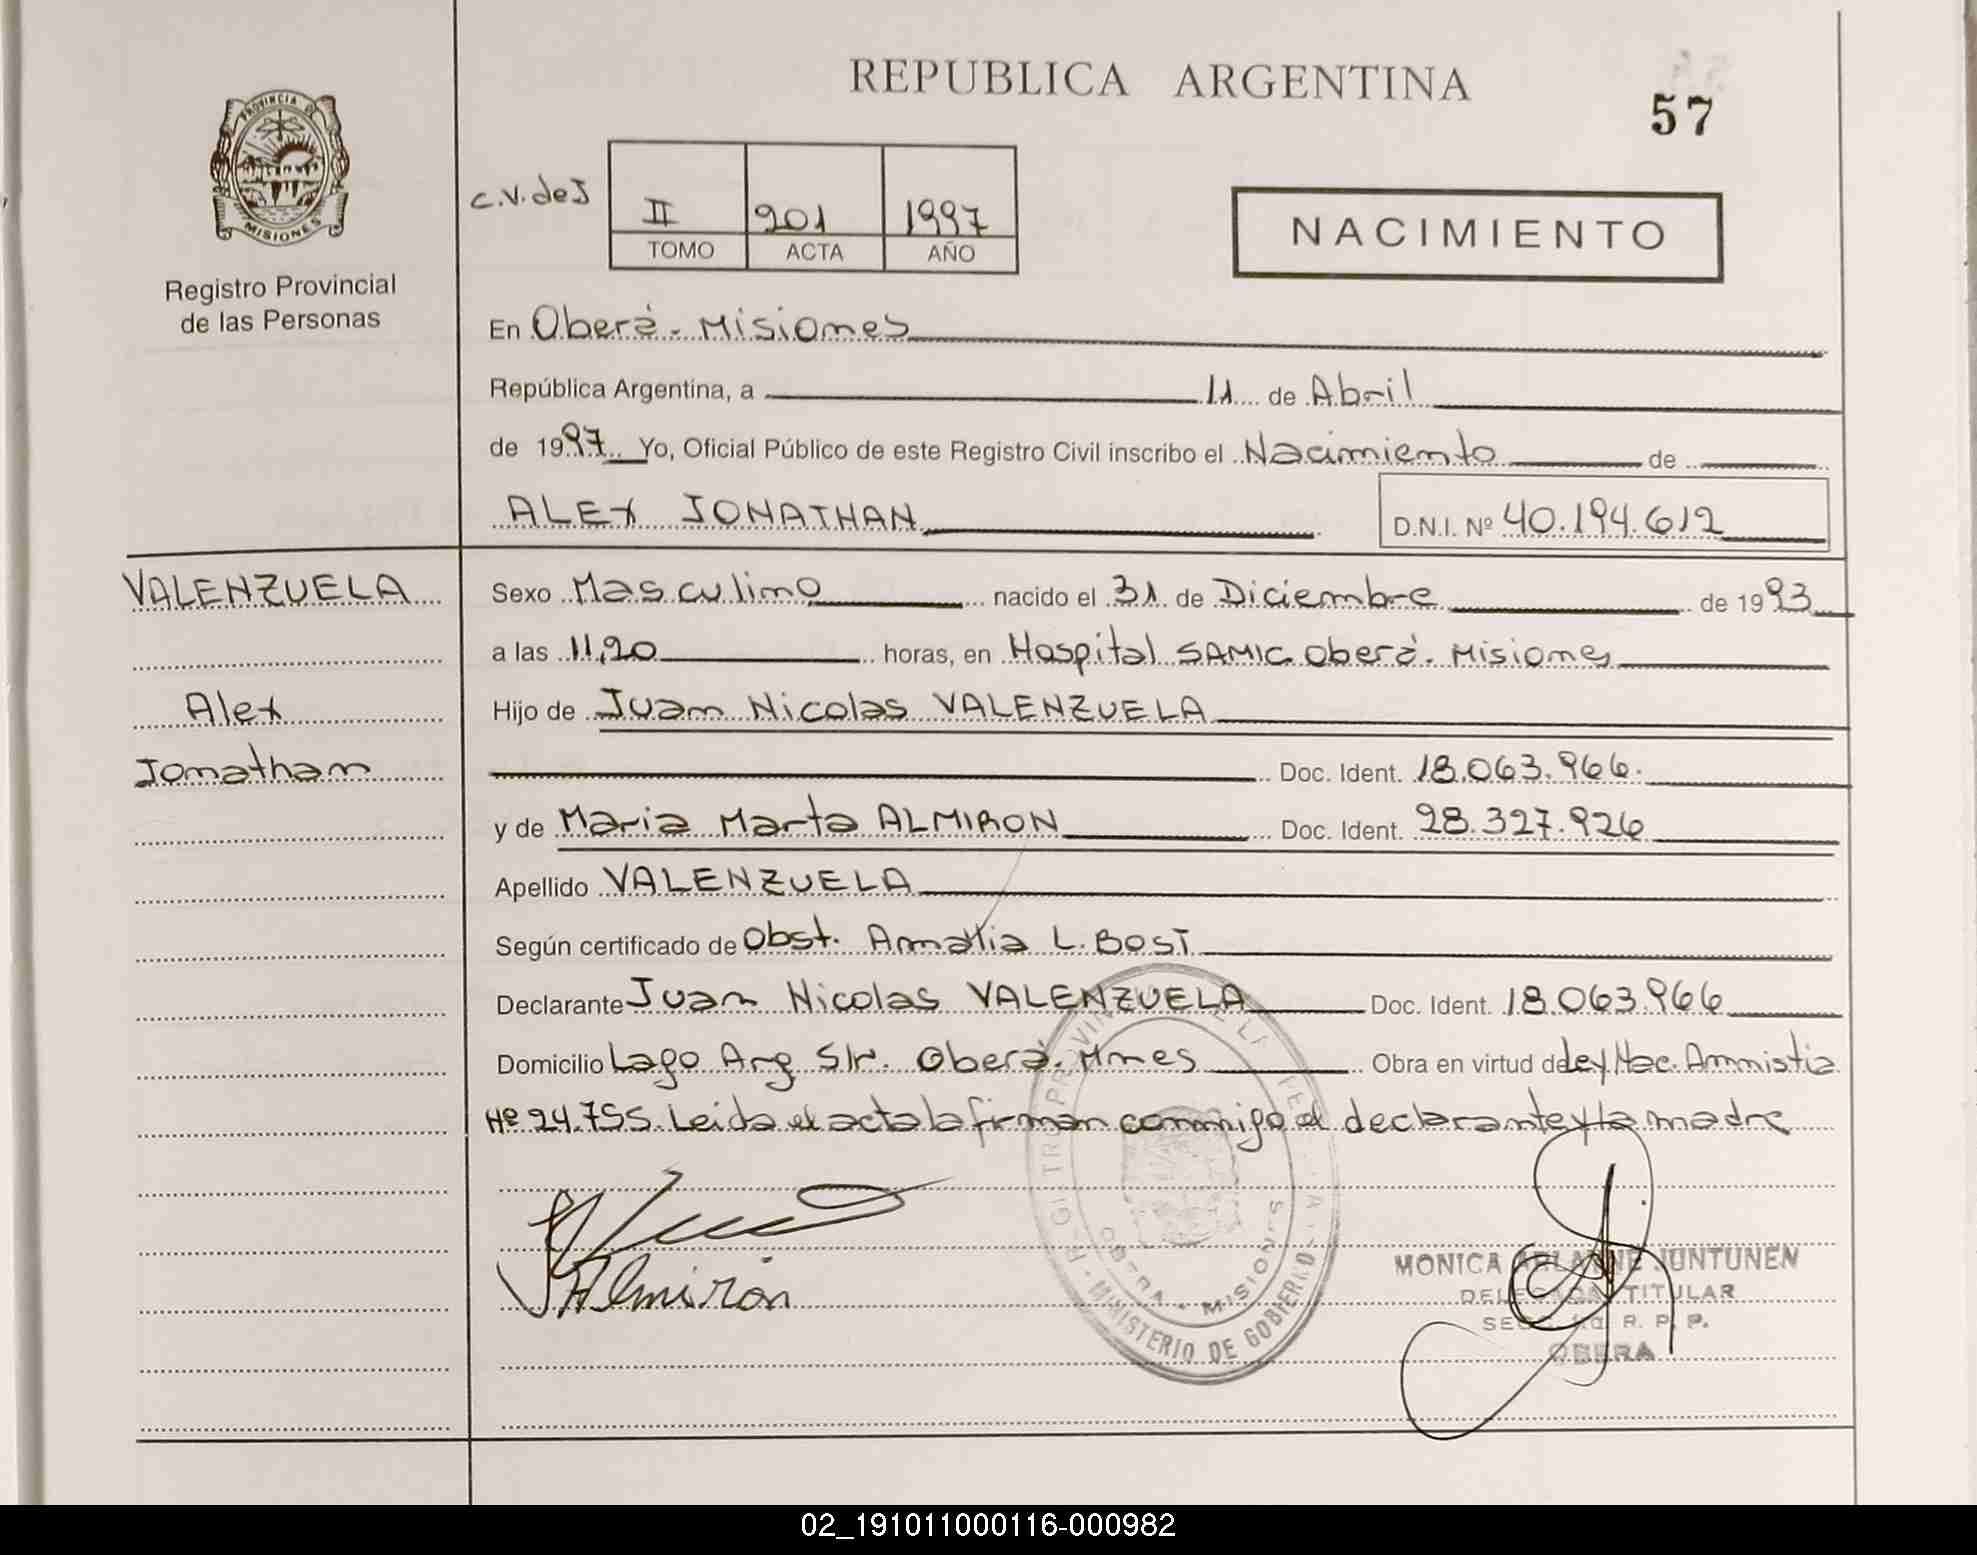 REPUBLICA ARGENTINA
57
PROVINCIA DE
MISIONES
Registro Provincial
de las Personas
C.V. de J
II 201 1997
TOMO ACTA AÑO
NACIMIENTO
En Oberá - Misiones
República Argentina, a 11 de Abril
de 1997 Yo, Oficial Público de este Registro Civil inscribo el Nacimiento de
ALEX JONATHAN D.N.I. Nº 40.194.612
VALENZUELA
Alex
Jonathan
Sexo Masculino nacido el 31 de Diciembre de 1993
a las 11,20 horas, en Hospital SAMIC Oberá. Misiones
Hijo de Juan Nicolas VALENZUELA
Doc. Ident. 18.063.966.
y de Maria Marta ALMIRON Doc. Ident. 28.327.926
Apellido VALENZUELA
Según certificado de Obst. Amalia L. BOST
Declarante Juan Nicolas VALENZUELA Doc. Ident. 18.063.966
Domicilio Lago Arg. S/n. Oberá. Mnes Obra en virtud de Ley Nac. Amnistia
Nº 24.755. Leida el acta la firman conmigo el declarante y la madre
Almirón
OBERA - MISIONES
MINISTERIO DE GOBIERNO
MONICA ARLANNE JUNTUNEN
DELEGADA TITULAR
R. P. P.
OBERA
02_191011000116-000982